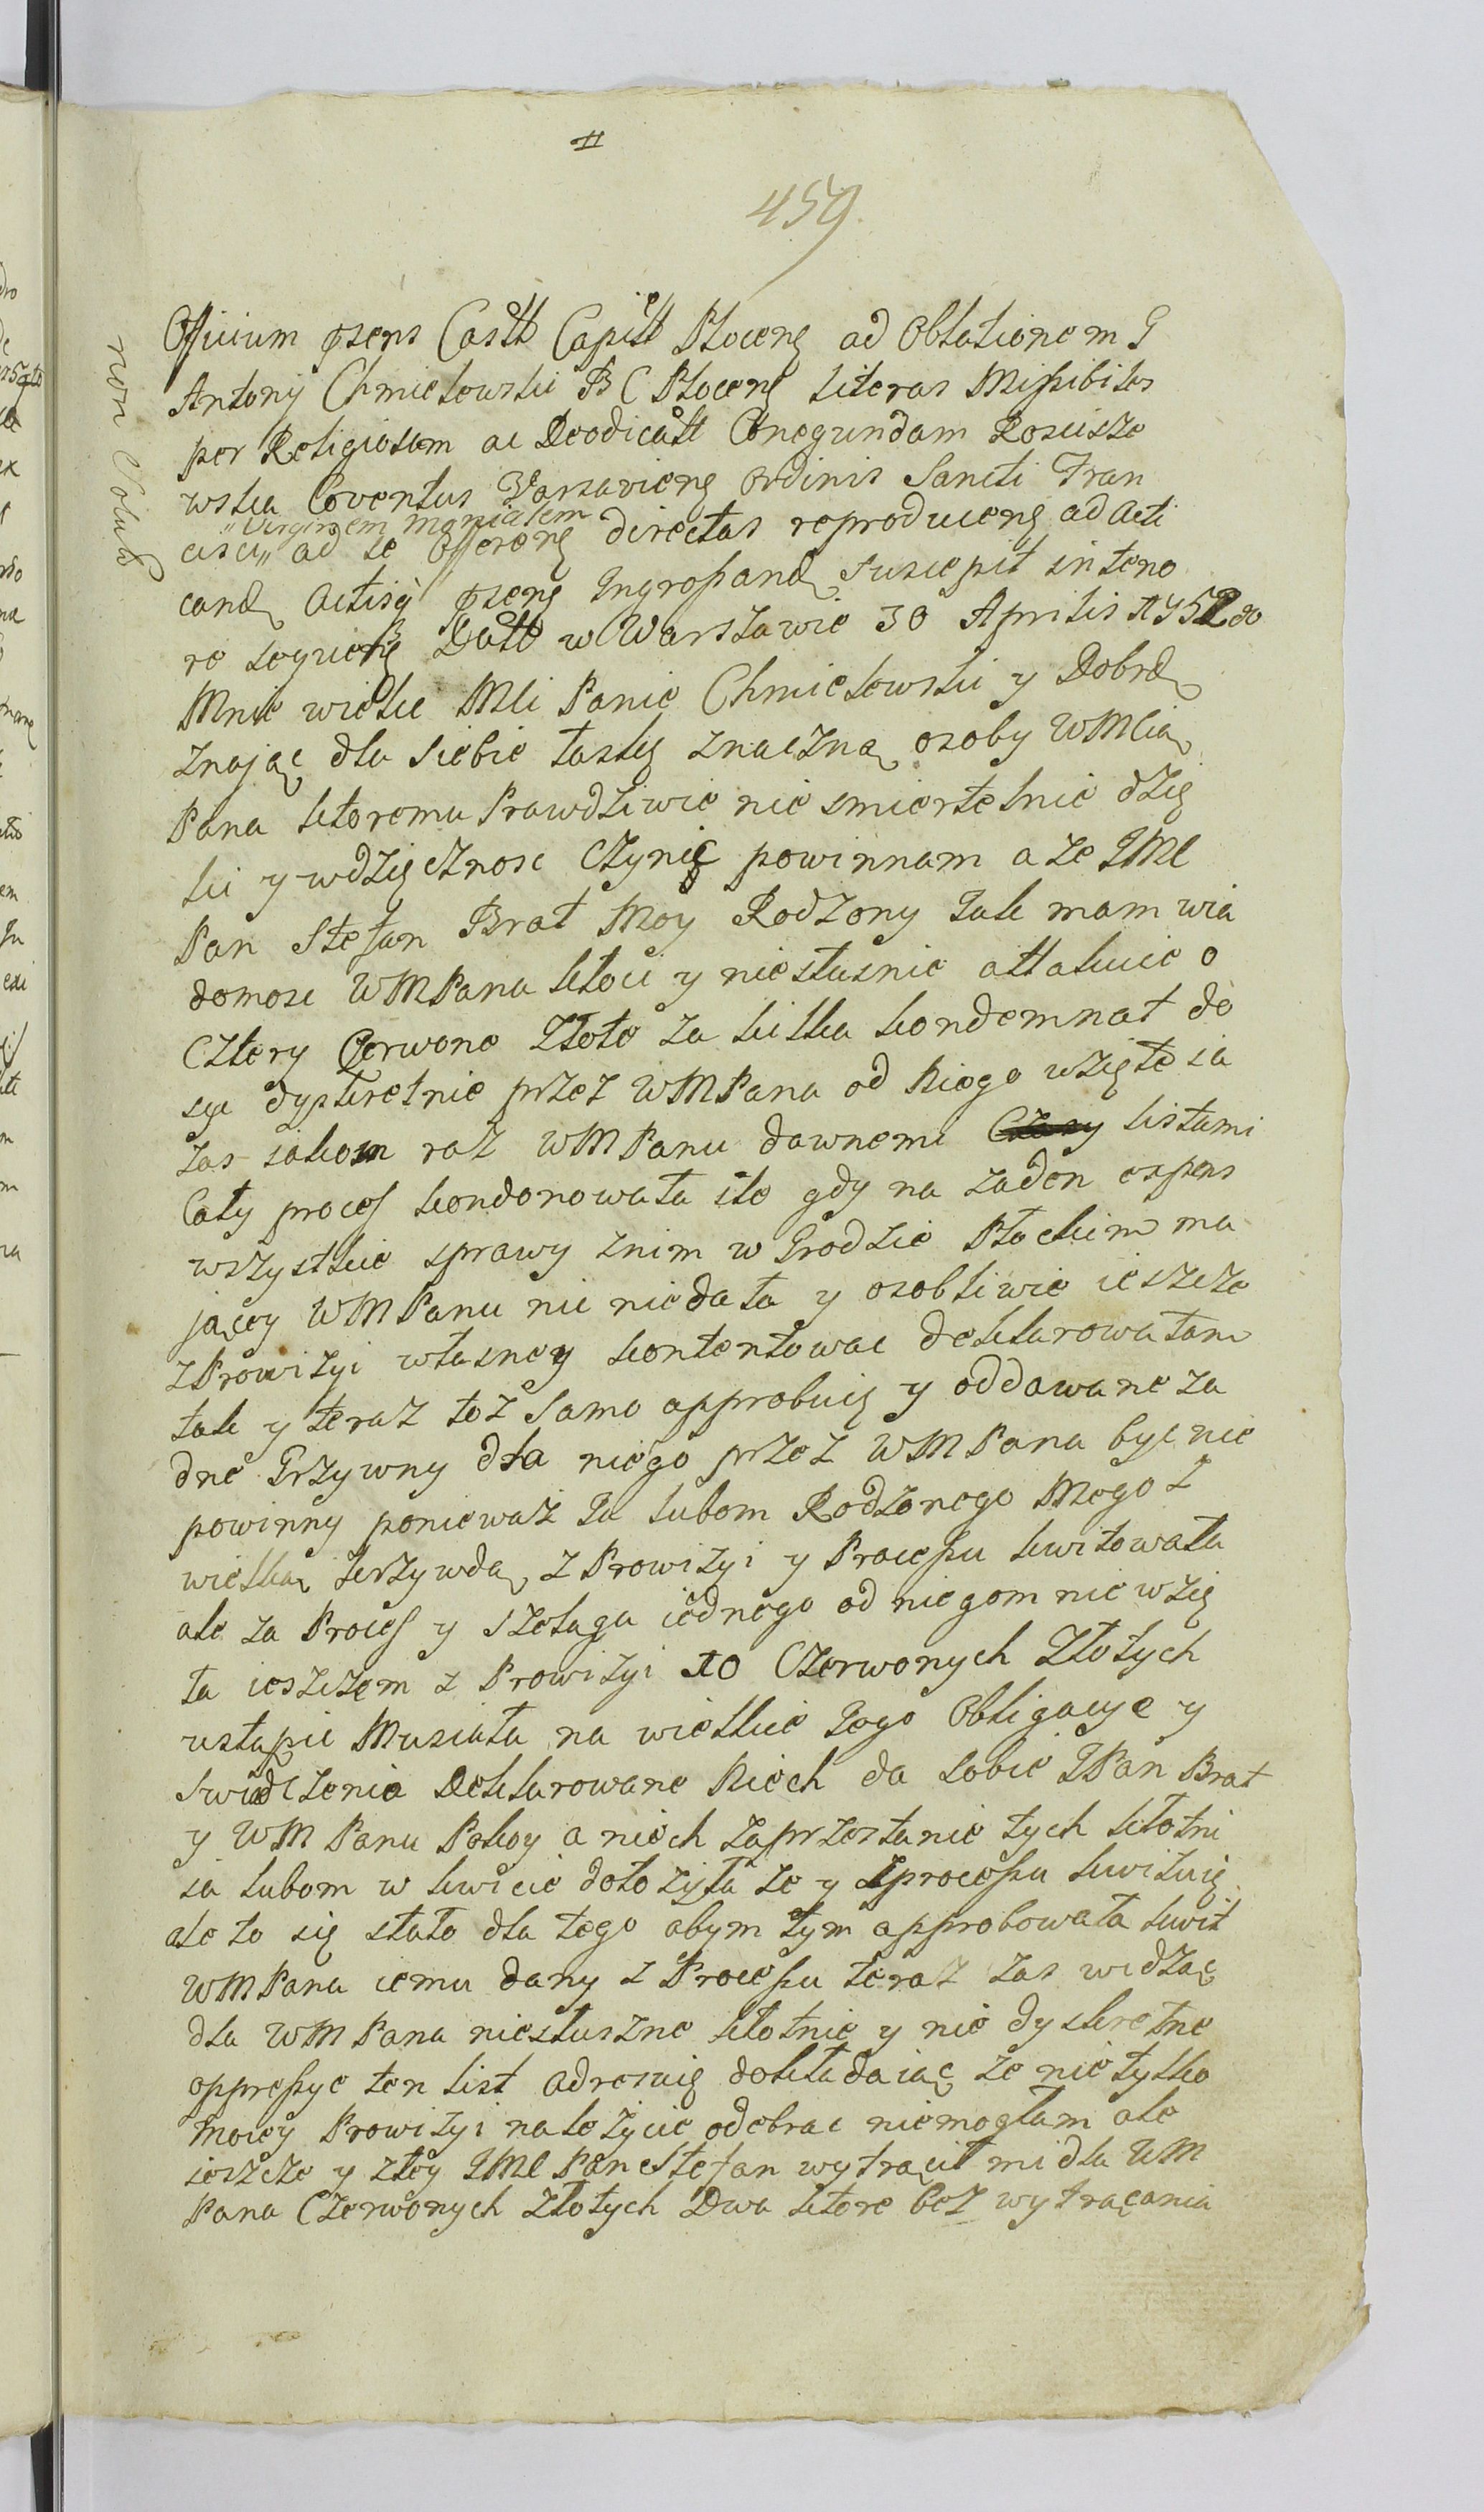 II
459.
non Solut
Officium pzens Castt Capitt Płoceng ad Oblationem G
Antonij Chmielowski B C Płoceng literas Missibiles
per Religiosam ac Deodicatt Cunegundam Kosciszo
wska Coventus Varsavieng Ordinis Sancti Fran
„Virginem Monialem
cisci„ ad se Offereng directas reproduceng ad acti
cand Actisq pzeng Ingrossand Suscepit in teno
re sequeng Datt w Warszawie 30 Aprilis 1752do
Mnie wielce Mci Panie Chmielewski y Dobrd
znając dla siebie łaskę znaczną osoby WMCia
Pana ktoremu Prawdziwie nie smiertelnie dzię
ki y wdzięcznosc Czynię powinnam a ze JMC
Pan Stefan Brat Moy Rodzony Jak mam wia
domosc WMPana kłoci y niesłusnie attakuie o
Cztery Czerwone Złote za kilka kondemnat do
syc dyskretnie przez WMPana od Niego wzięte ia
zas iakom raz WMPanu dawnemi Czasy listami
Cały proces kondonowała ile gdy na zaden expens
wszystkie sprawy znim w Grodzie Płockim ma
jącey WMPanu nic niedała y osobliwie ieszcze
z Prowizyi własney kontentowac deklarowałam
tak y teraz toz samo approbuię y oddawane za
dne Grzywny dla niego przez WMPana byc nie
powinny poniewaz Ja lubom Rodzonego Mego z
wielką krzywdą z Prowizyi y Processu kwitowała
ale za Proces y szeląga iednego od niegom nie wzię
ła ieszczem z Prowizyi 10 Czerwonych Złotych
ustąpic Musiała na wielkie Jego Obligacye y
Swiadczenia Deklarowane Niech da sobie JPan Brat
y WM Panu Pokoy a niech zaprzestanie tych kłotni
ia lubom w kwicie dołozyła ze y zprocessu kwituię
ale to się stało dla tego abym tym approbowała kwit
WMPana iemu dany z Processu teraz zas widząc
dla WM Pana niesłuszne kłotnie y nie dyskretne
oppressye ten list adresuię dokładaiąc ze nie tylko
moiey Prowizyi nalezycie odebrac niemogłam ale
ieszcze y ztey JMC Pan Stefan wytrącił mi dla WM
Pana Czerwonych Złotych Dwa ktore bez wytrącania